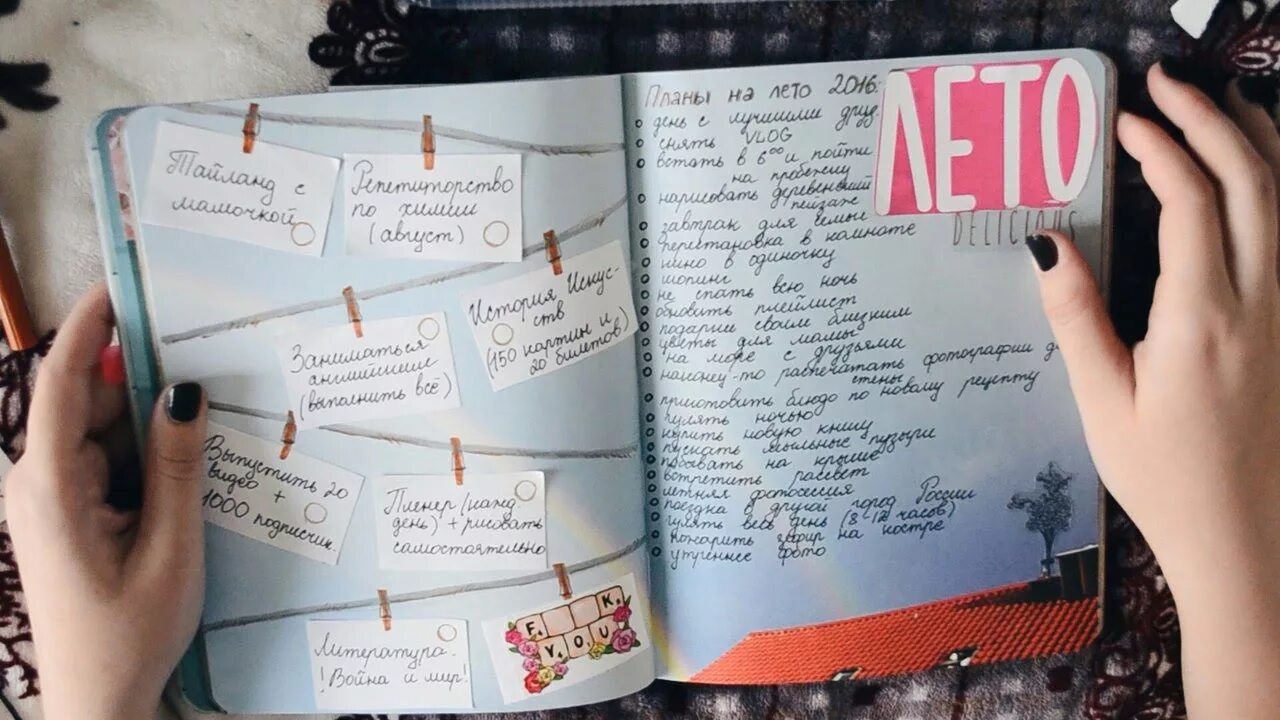 Тайланд с
мамочкой
Репетиторство
по химии
(август)
История Искус-
ств
(150 картин и
20 билетов)
Заниматься
английским
(выполнить всё)
Выпустить 20
видео +
1000 подписчик.
Пленер (кажд.
день) + рисовать
самостоятельно
Литература.
! Война и мир!
F K
YOU
ЛЕТО
DELICIOUS
Планы на лето 2016:
день с лучшими друз.
снять VLOG
встать в 6⁰⁰ и пойти
на пробежку
нарисовать деревенский
пейзаж
завтрак для семьи
перестановка в комнате
кино в одиночку
шопинг
не спать всю ночь
обновить плейлист
подарки своим близким
цветы для мамы
на море с друзьями
наконец-то распечатать фотографии для
стены
приготовить блюдо по новому рецепту
гулять ночью
купить новую книгу
пускать мыльные пузыри
побывать на крыше
встретить рассвет
летняя фотосессия
поездка в другой город России
гулять весь день (8-12 часов)
пожарить зефир на костре
утреннее фото